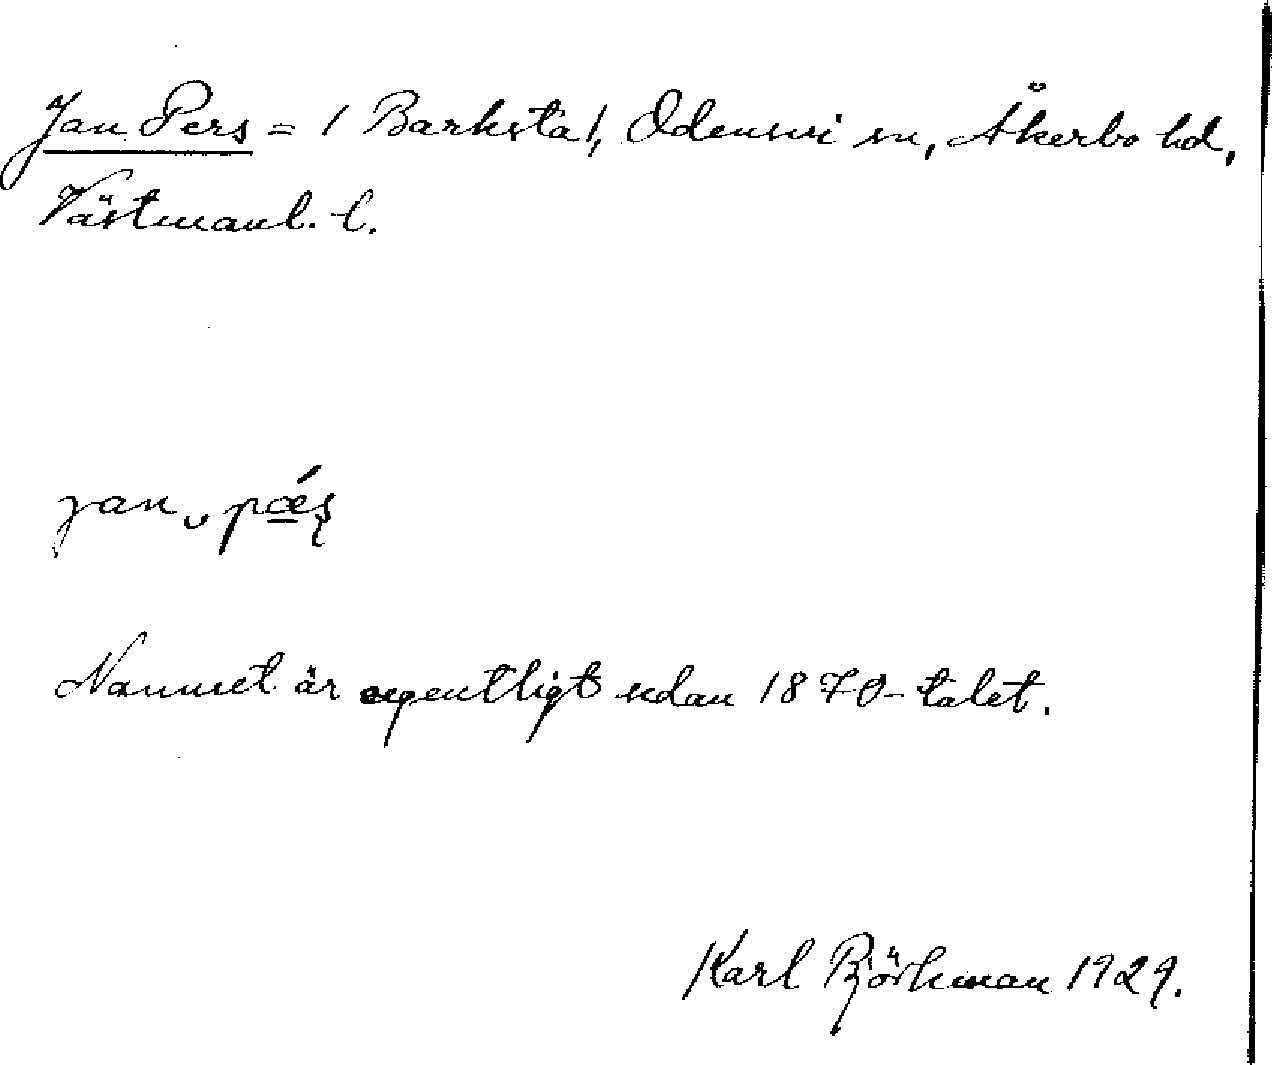 Jan Pers = / Barksta /, Odensvi sn, Åkerbo hd,
Västmanl. l.
jan ̮ pǽʂ
Namnet är egentligt sedan 1870-talet.
Karl Björkman 1929.